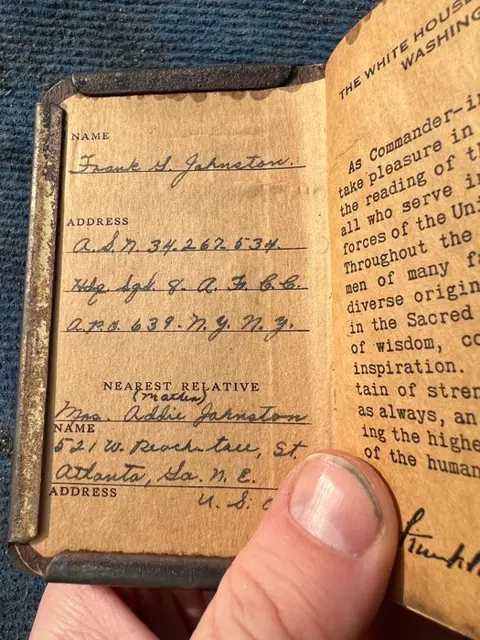 NAME
Frank G. Johnston.
ADDRESS
A.S.N. 34.267.534.
Hdq Sqd. 8. A. F. C. C.
A.P.O. 639. N.Y. N.Y.
NEAREST RELATIVE
(Mother)
Mrs. Addie Johnston
NAME
521 W. Peach-tree, St
Atlanta, Ga. N. E.
ADDRESS
U. S.
THE WHITE HOUSE
WASHING
As Commander-in
take pleasure in
the reading of th
all who serve in
forces of the Uni
Throughout the
men of many fa
diverse origin
in the Sacred
of wisdom, co
inspiration.
tain of stren
as always, an
ing the highe
of the human